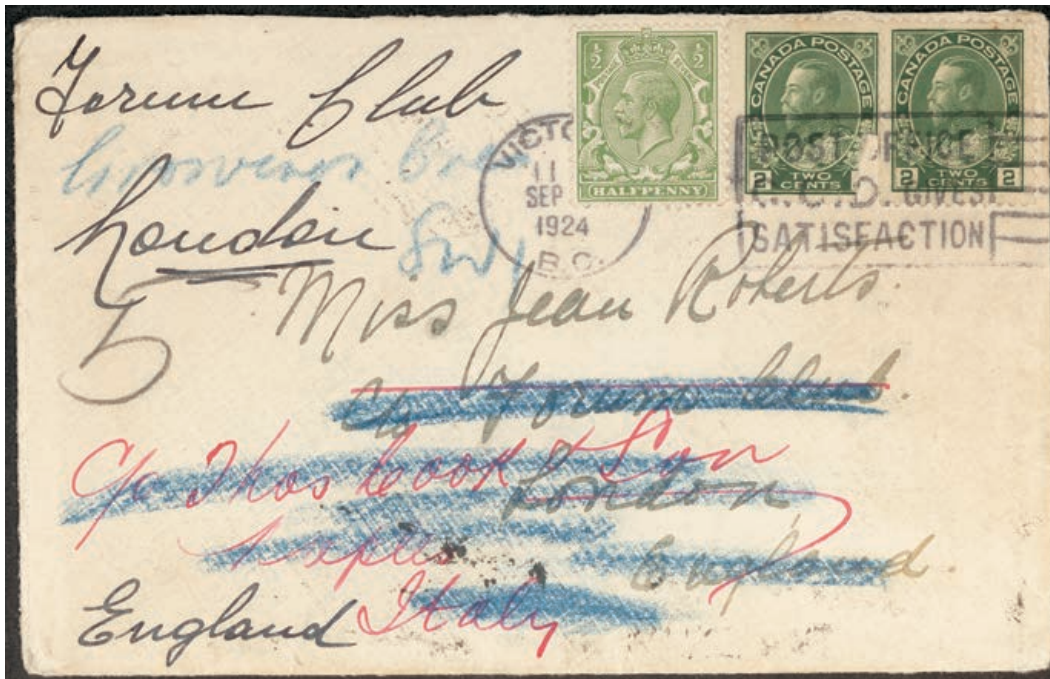 Forum Club
Grosvenor Cres
London
SW1
5
½ ½
HALFPENNY
CANADA POSTAGE
2 TWO CENTS
CANADA POSTAGE
2 TWO CENTS 2
VICTO
11
SEP
1924
B.C.
POST OFFICE
C.O.D. GIVES
SATISFACTION
Miss Jean Roberts.
c/o Forum Club.
London
England.
c/o Thos Cook & Son
Naples
Italy
England